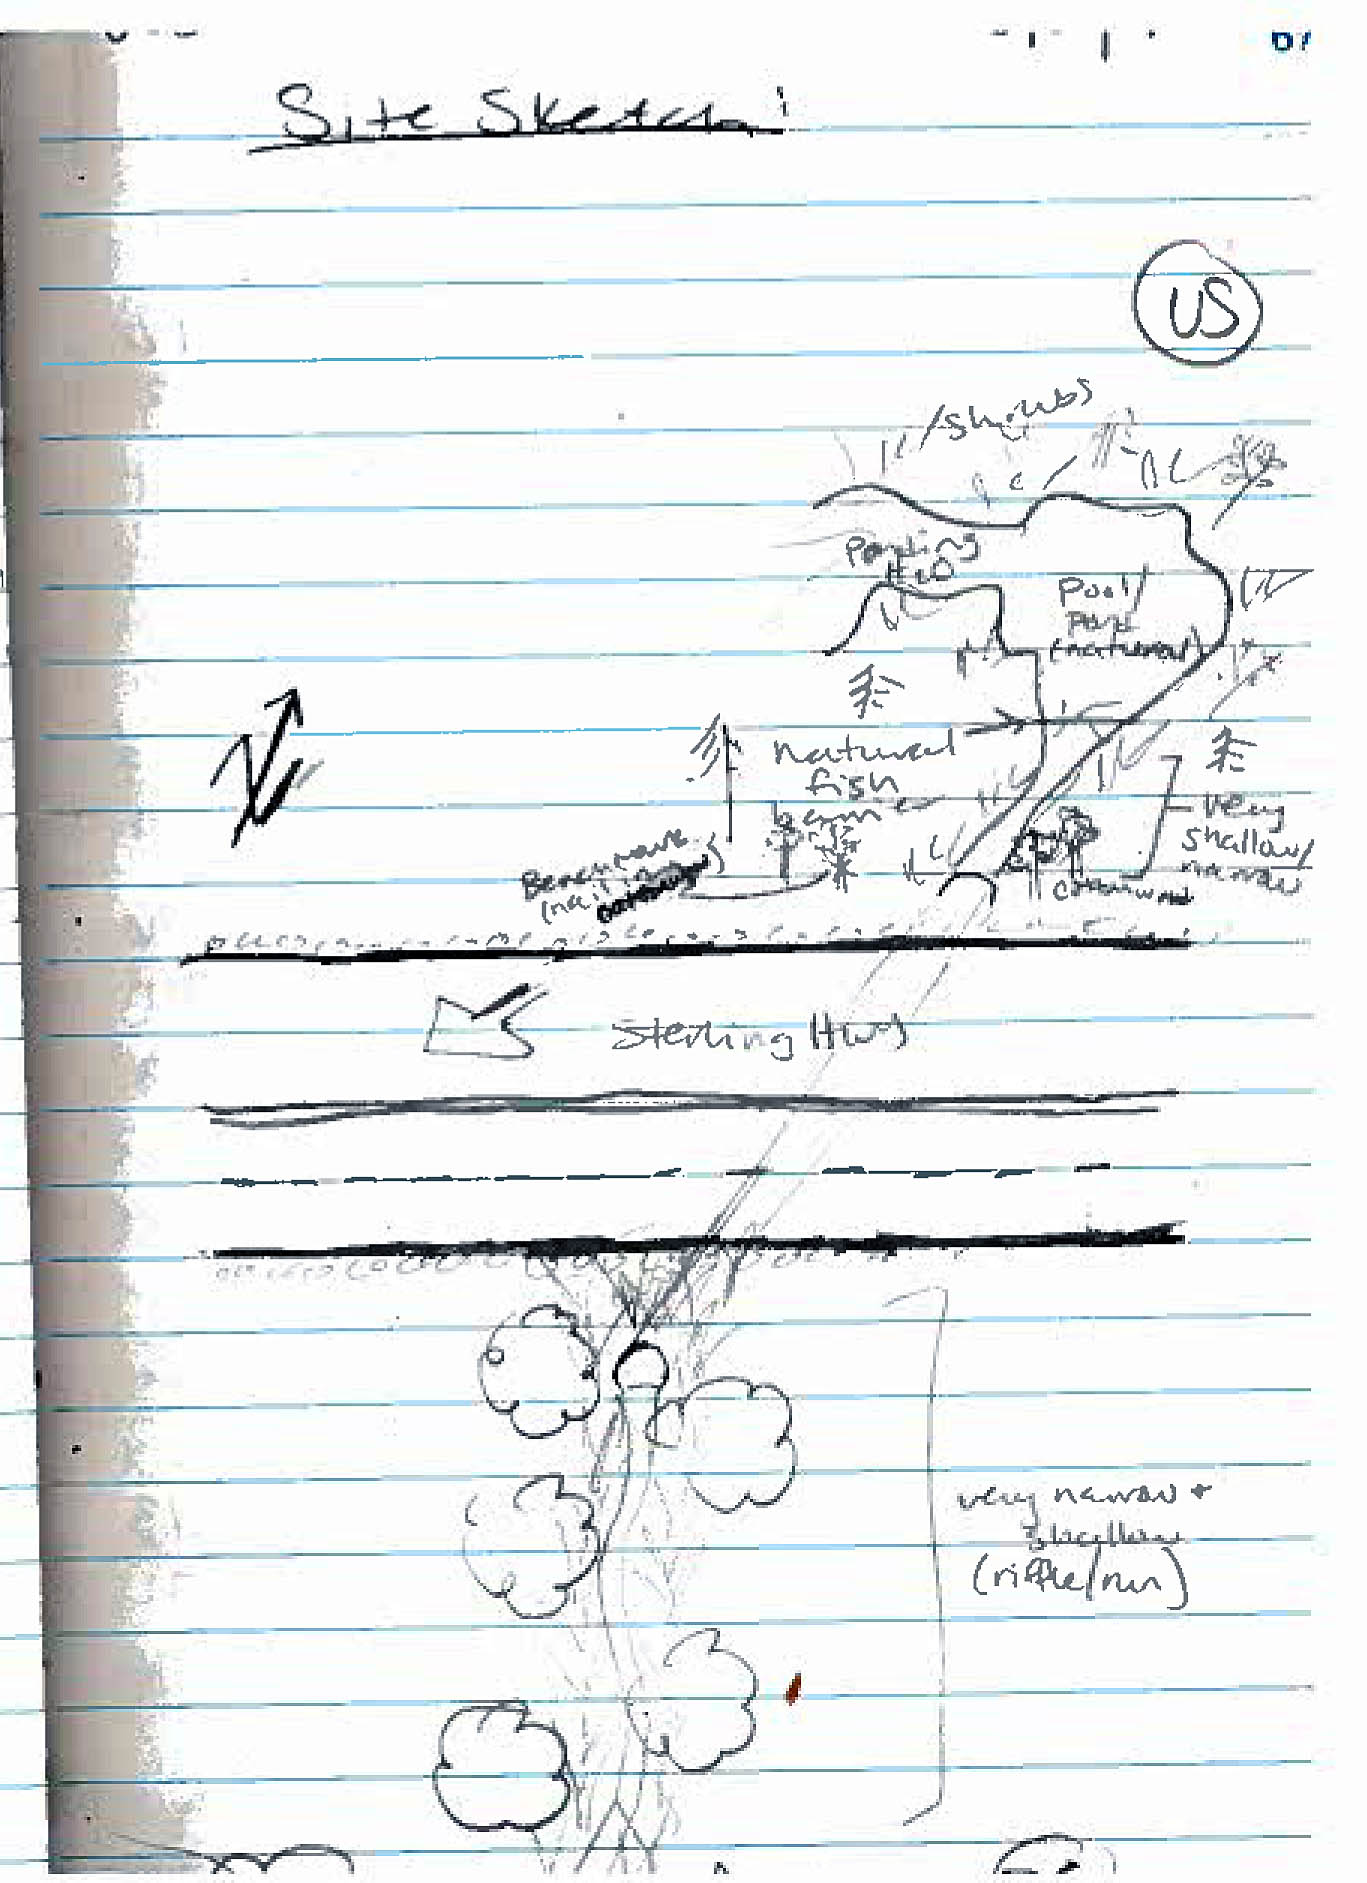 Site Sketch:
US
/shrubs
Ponding
H2O
Pool/
Pond
(natural)
N
natural
fish
Very
shallow/
narrow
Benchmark
(nail in
cottonwood
Sterling Hwy
very narrow +
shallow
(riffle/run)